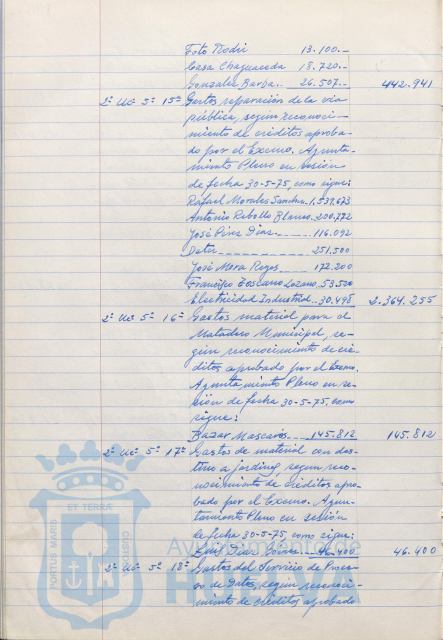 Foto Rodri 13.100.-
Casa Chaguaceda 18.720.-
Gonzalez Barba.. 26.507.- 442.941
2º Uc 5º 15º Gastos reparación de la via
pública, segun reconoci-
miento de créditos aproba-
do por el Excmo. Ayunta-
miento Pleno en sesión
de fecha 30-5-75, como sigue:
Rafael Morales Sanchez 1.539.673
Antonio Rebollo Blanco 200.772
José Pérez Diaz 116.092
251.500
José Mora Rojas 172.200
Francisco Toscano Lozano 53.520
Electricidad Industrial 30.498 2.364.255
2º Uc 5º 16º Gastos material para el
Matadero Municipal, se-
gún reconocimiento de cré-
ditos aprobado por el Excmo.
Ayuntamiento Pleno en se-
sión de fecha 30-5-75, como
sigue:
Bazar Mascarós 145.812 145.812
2º Uc 5º 17º Gastos de material con des-
tino a jardines, segun reco-
nocimiento de créditos apro-
bado por el Excmo. Ayun-
tamiento Pleno en sesión
de fecha 30-5-75, como sigue:
Luis Diaz Gómez 46.400 46.400
2º Uc 5º 18º Gastos del Servicio de Proce-
so de Datos, segun reconoci-
miento de créditos aprobado
PORTUS MARIS ET TERRÆ CUSTODIA
Ayuntamiento de